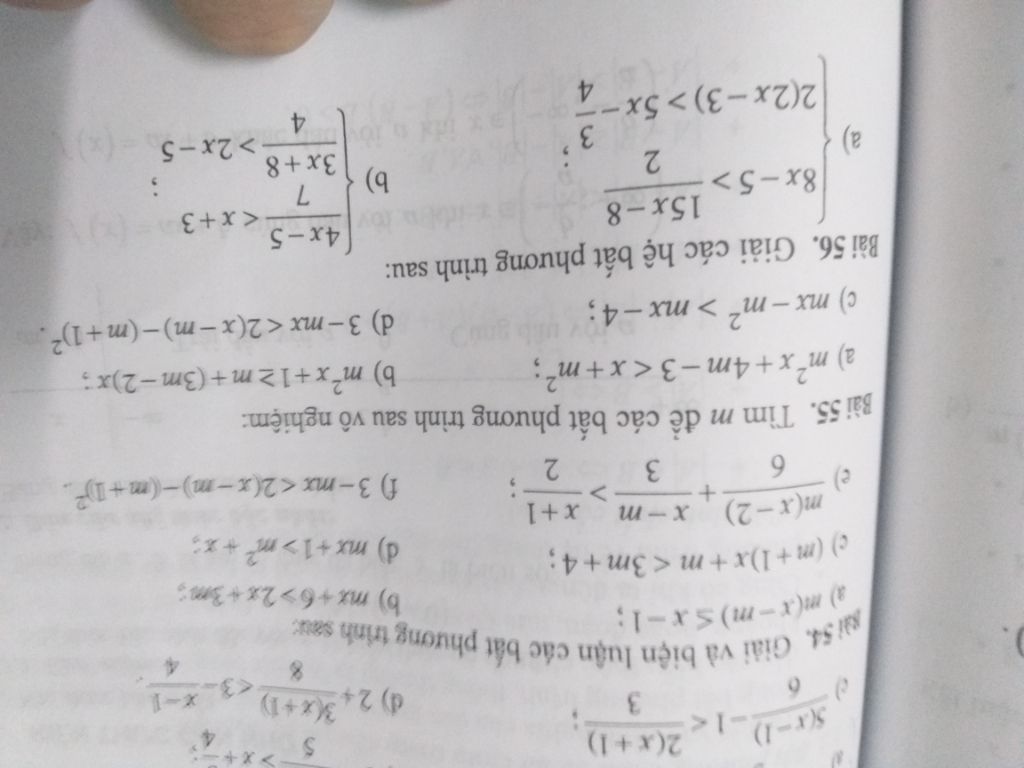 5 > x + 4 ;
c) 5(x−1)/6 − 1 < 2(x+1)/3 ;
d) 2 + 3(x+1)/8 < 3 − x−1/4 .
Bài 54. Giải và biện luận các bất phương trình sau:
a) m(x − m) ≤ x − 1 ;
b) mx + 6 > 2x + 3m ;
c) (m + 1)x + m < 3m + 4 ;
d) mx + 1 > m² + x ;
e) m(x−2)/6 + x−m/3 > x+1/2 ;
f) 3 − mx < 2(x − m) − (m + 1)² .
Bài 55. Tìm m để các bất phương trình sau vô nghiệm:
a) m²x + 4m − 3 < x + m² ;
b) m²x + 1 ≥ m + (3m − 2)x ;
c) mx − m² > mx − 4 ;
d) 3 − mx < 2(x − m) − (m + 1)² .
Bài 56. Giải các hệ bất phương trình sau:
a) { 8x − 5 > 15x−8/2
2(2x − 3) > 5x − 3/4 ;
b) { 4x−5/7 < x + 3
3x+8/4 > 2x − 5 ;